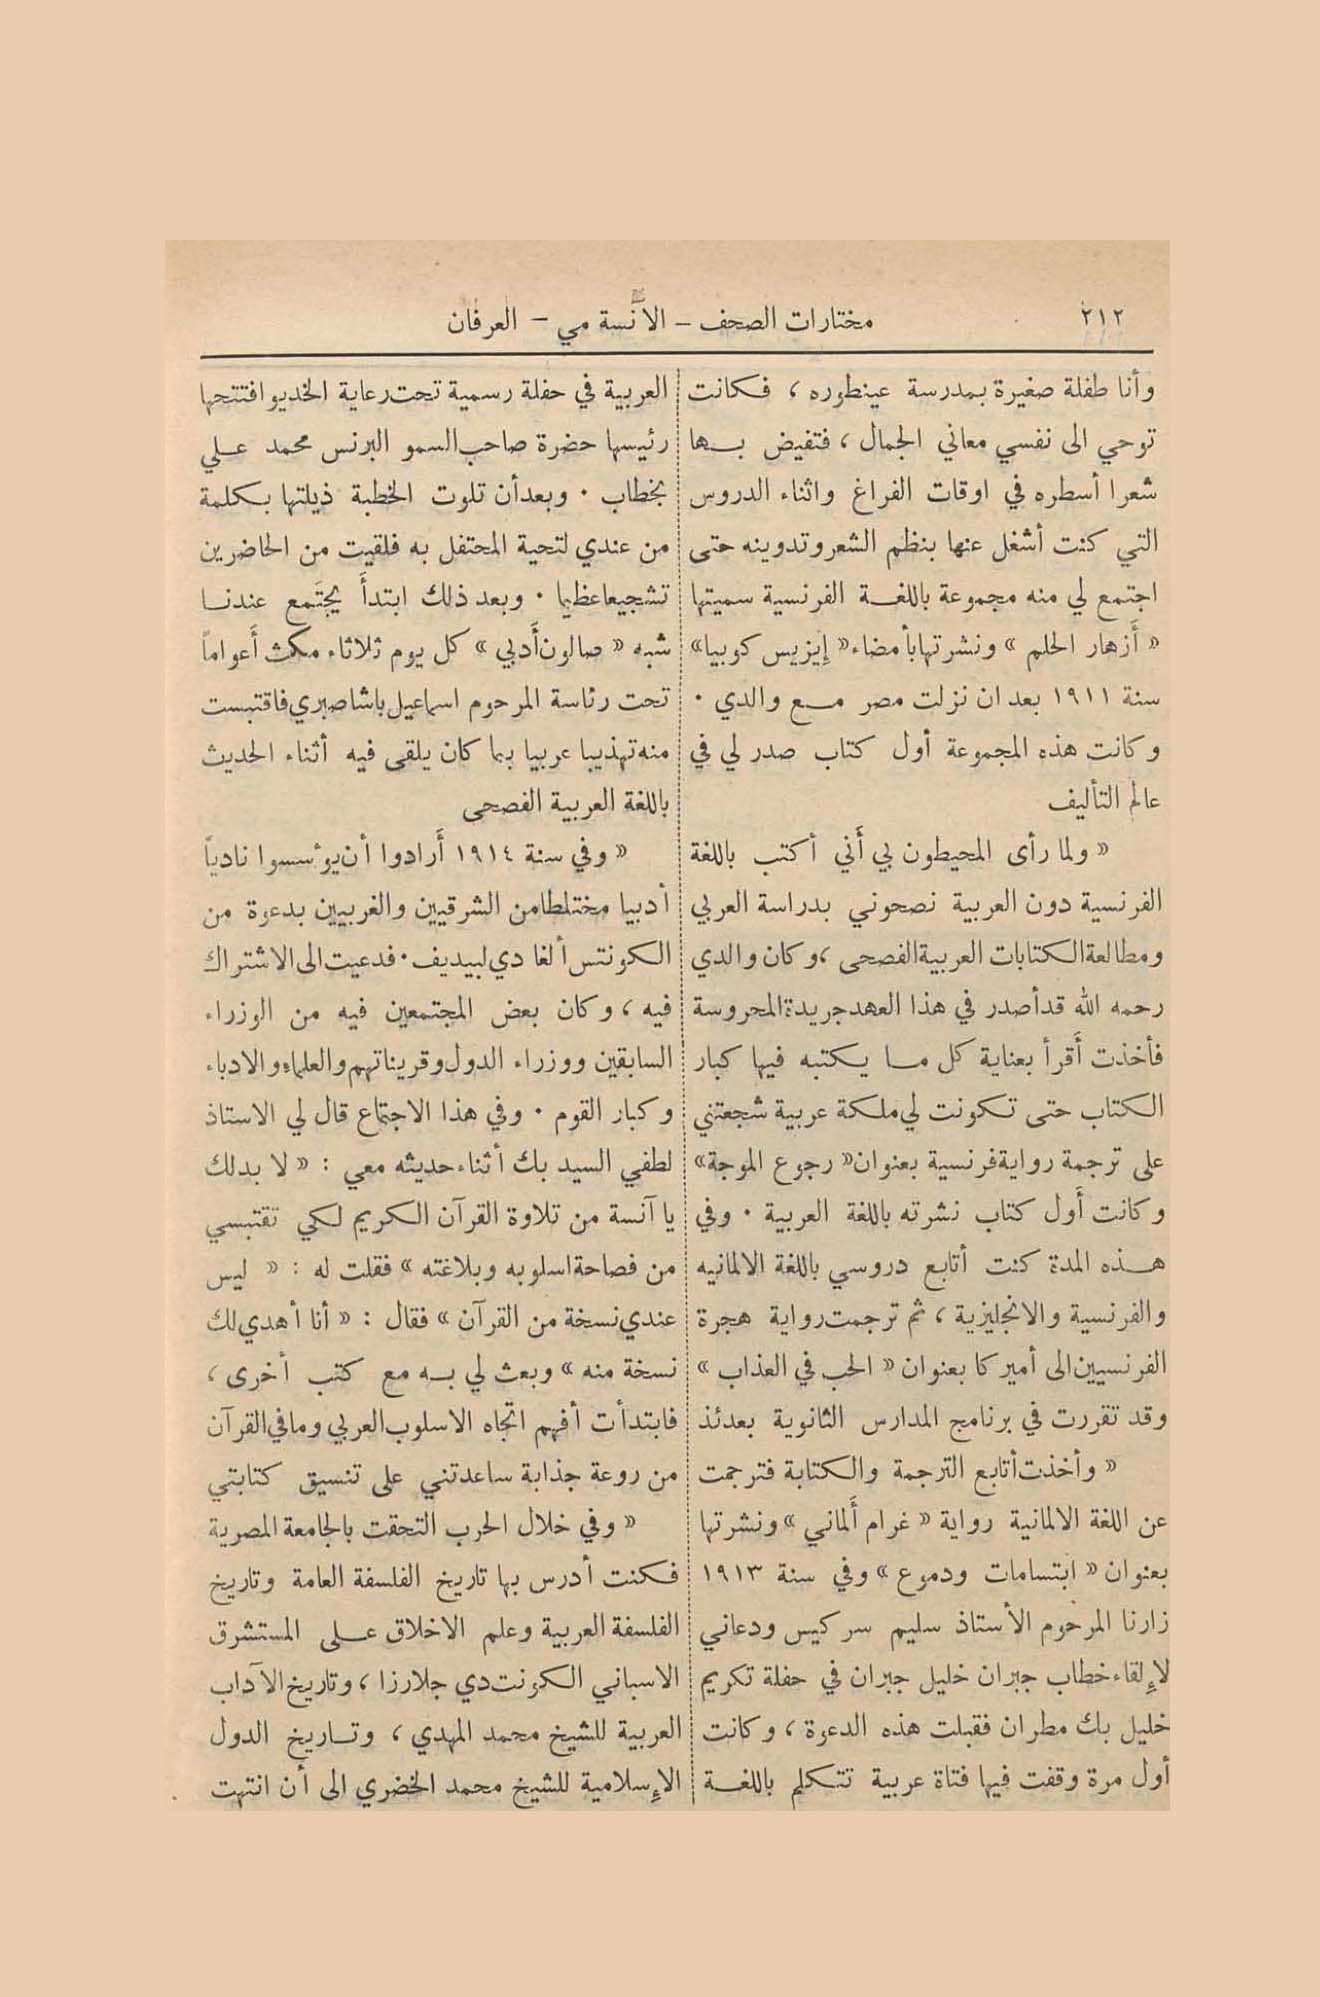 ٢١٢
مختارات الصحف – الآنسة مي – العرفان
وأنا طفلة صغيرة بمدرسة عينطوره ، فكانت
توحي الى نفسي معاني الجمال ، فتفيض بها
شعرا أسطره في اوقات الفراغ واثناء الدروس
التي كنت أشغل عنها بنظم الشعر وتدوينه حتى
اجتمع لي منه مجموعة باللغة الفرنسية سميتها
« أزهار الحلم » ونشرتها بأمضاء « إيزيس كوبيا»
سنة ١٩١١ بعد ان نزلت مصر مع والدي .
وكانت هذه المجموعة أول كتاب صدر لي في
عالم التأليف
« ولما رأى المحيطون بي أَني أكتب باللغة
الفرنسية دون العربية نصحوني بدراسة العربي
ومطالعة الكتابات العربية الفصحى ، وكان والدي
رحمه الله قد أصدر في هذا العهد جريدة المحروسة
فأخذت أَقرأ بعناية كل ما يكتبه فيها كبار
الكتاب حتى تكونت لي ملكة عربية شجعتني
على ترجمة رواية فرنسية بعنوان « رجوع الموجة»
وكانت أَول كتاب نشرته باللغة العربية . وفي
هذه المدة كنت أتابع دروسي باللغة الالمانيه
والفرنسية والانجليزية ، ثم ترجمت رواية هجرة
الفرنسيين الى أميركا بعنوان « الحب في العذاب »
وقد تقررت في برنامج المدارس الثانوية بعدئذ
« وأخذت أتابع الترجمة والكتابة فترجمت
عن اللغة الالمانية رواية « غرام أَلماني » ونشرتها
بعنوان « ابتسامات ودموع » وفي سنة ١٩١٣
زارنا المرحوم الأستاذ سليم سركيس ودعاني
لإلقاء خطاب جبران خليل جبران في حفلة تكريم
خليل بك مطران فقبلت هذه الدعوة ، وكانت
أول مرة وقفت فيها فتاة عربية تتكلم باللغة
العربية في حفلة رسمية تحت رعاية الخديو افتتحها
رئيسها حضرة صاحب السمو البرنس محمد علي
بخطاب . وبعد أن تلوت الخطبة ذيلتها بكلمة
من عندي لتحية المحتفل به فلقيت من الحاضرين
تشجيعا عظيما . وبعد ذلك ابتدأَ يجتَمع عندنا
شبه « صالون أَدبي » كل يوم ثلاثاء مكث أَعواماً
تحت رئاسة المرحوم اسماعيل باشا صبري فاقتبست
منه تهذيبا عربيا بما كان يلقى فيه أثناء الحديث
باللغة العربية الفصحى
« وفي سنة ١٩١٤ أَرادوا أن يؤسسوا نادياً
أدبيا مختلطا من الشرقيين والغربيين بدعوة من
الكونتس ألغا دي لبيديف . فدعيت الى الاشتراك
فيه ، وكان بعض المجتمعين فيه من الوزراء
السابقين ووزراء الدول وقريناتهم والعلماء والادباء
وكبار القوم . وفي هذا الاجتماع قال لي الاستاذ
لطفي السيد بك أثناء حديثه معي : « لا بد لك
يا آنسة من تلاوة القرآن الكريم لكي تقتبسي
من فصاحة اسلوبه وبلاغته » فقلت له : « ليس
عندي نسخة من القرآن » فقال : « أنا أهدي لك
نسخة منه » وبعث لي به مع كتب أخرى ،
فابتدأت أفهم اتجاه الاسلوب العربي وما في القرآن
من روعة جذابة ساعدتني على تنسيق كتابتي
« وفي خلال الحرب التحقت بالجامعة المصرية
فكنت أدرس بها تاريخ الفلسفة العامة وتاريخ
الفلسفة العربية وعلم الاخلاق على المستشرق
الاسباني الكونت دي جلارزا ، وتاريخ الآداب
العربية للشيخ محمد المهدي ، وتاريخ الدول
الإسلامية للشيخ محمد الخضري الى أن انتهت